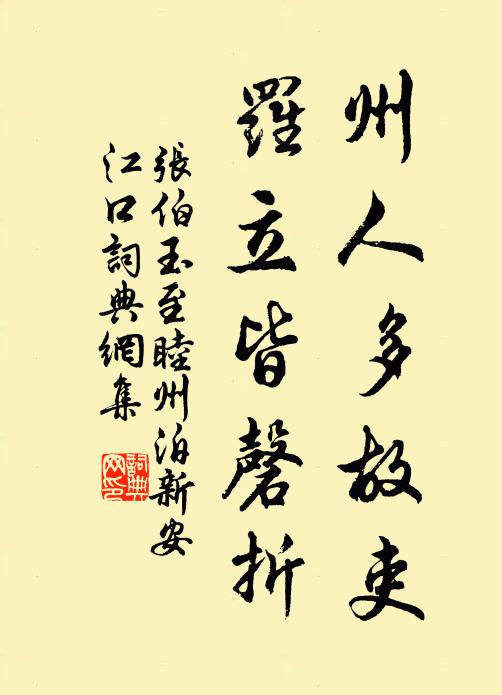 州人多故吏
羅立皆磬折
張伯玉至睦州泊新安
江口詞典網集
詞典
网印